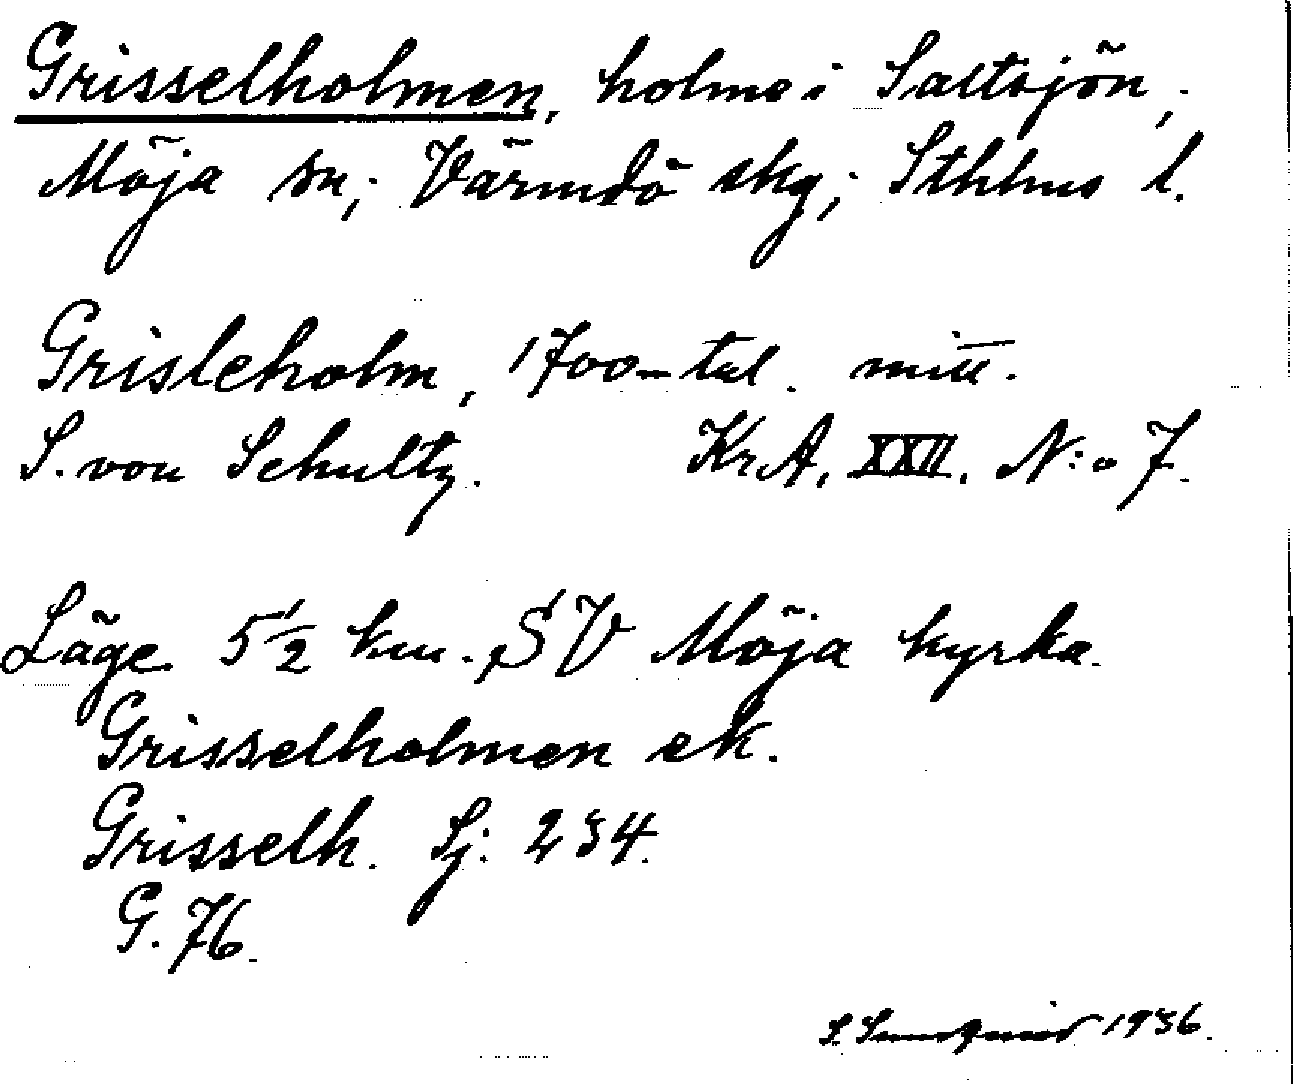 Grisselholmen, holme i Saltsjön,
Möja sn, Värmdö skg, Sthlms l.
Grisleholm, 1700-tal. mitt.
S. von Schultz. KrA, XXII. N:o 7.
Läge 5 1/2 km. SV Möja kyrka.
Grisselholmen ek.
Grisselh. Sj. 234.
G. 76.
S. Sundquist 1936.